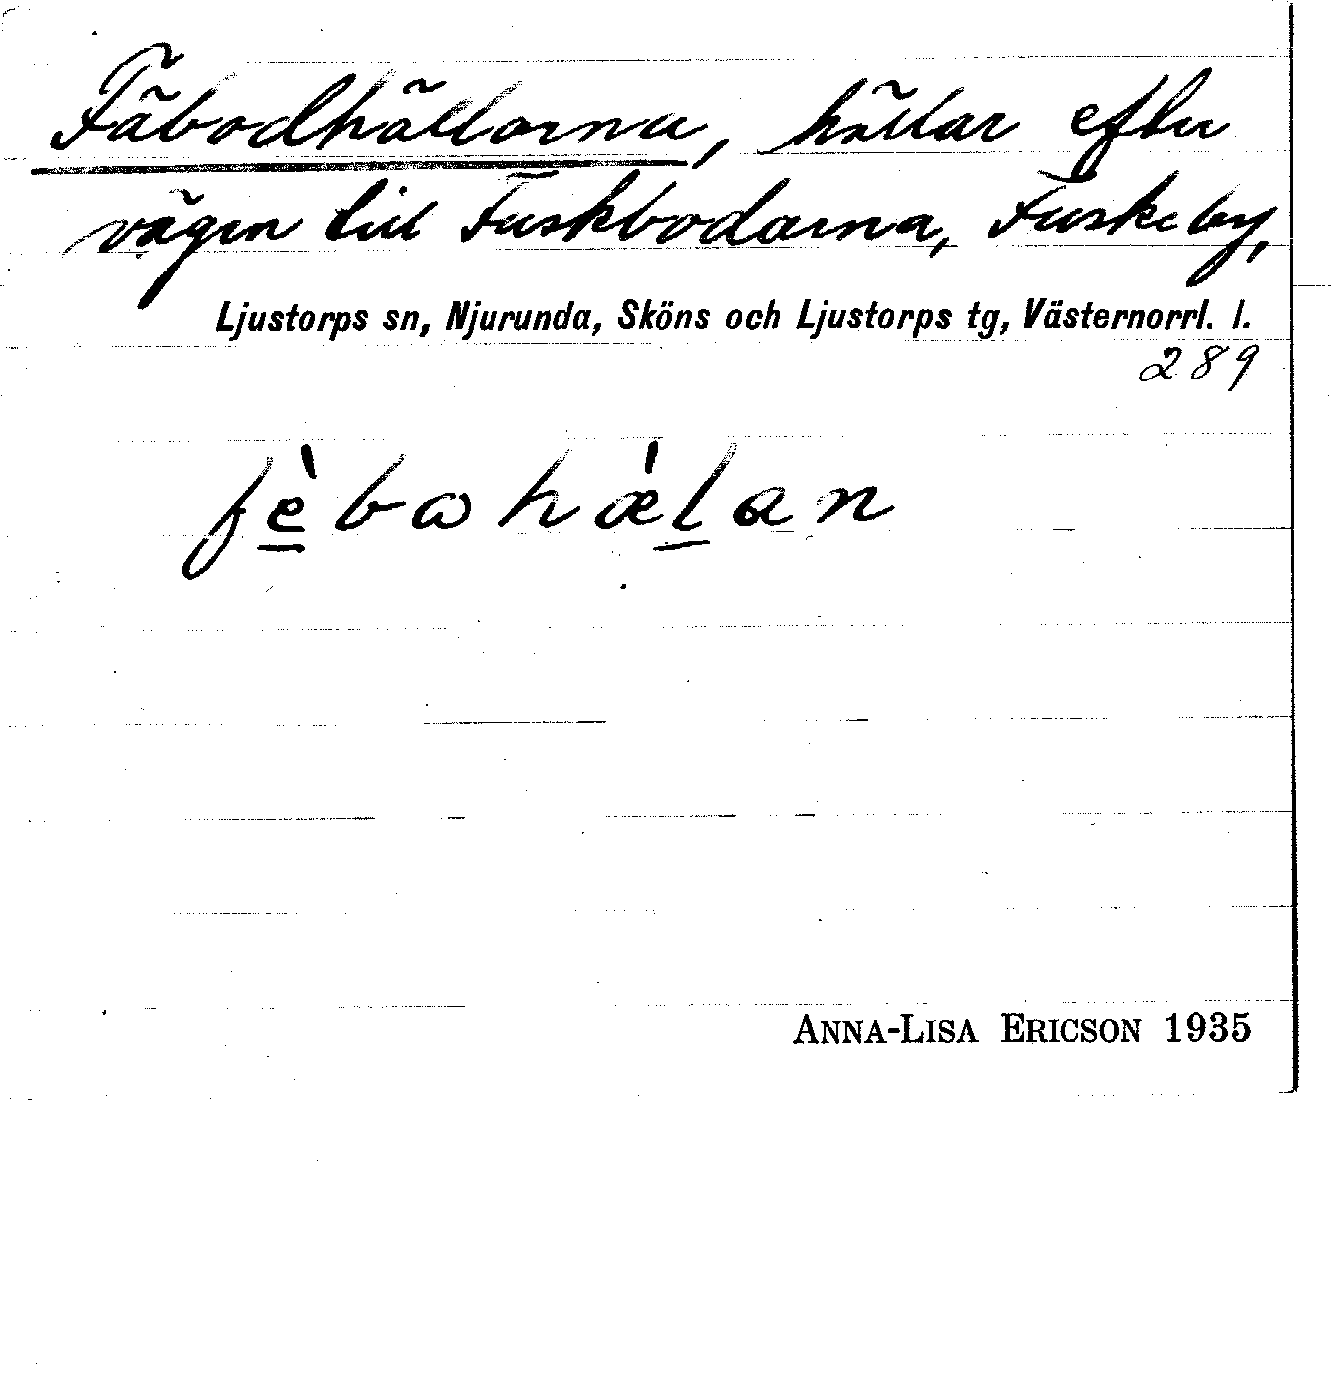 Fäbodhällarna, hällar efter
vägen till Fuskbodarna, Fuskeby,
Ljustorps sn, Njurunda, Sköns och Ljustorps tg, Västernorrl. l.
289
fèbωhæ̀lan
ANNA-LISA ERICSON 1935